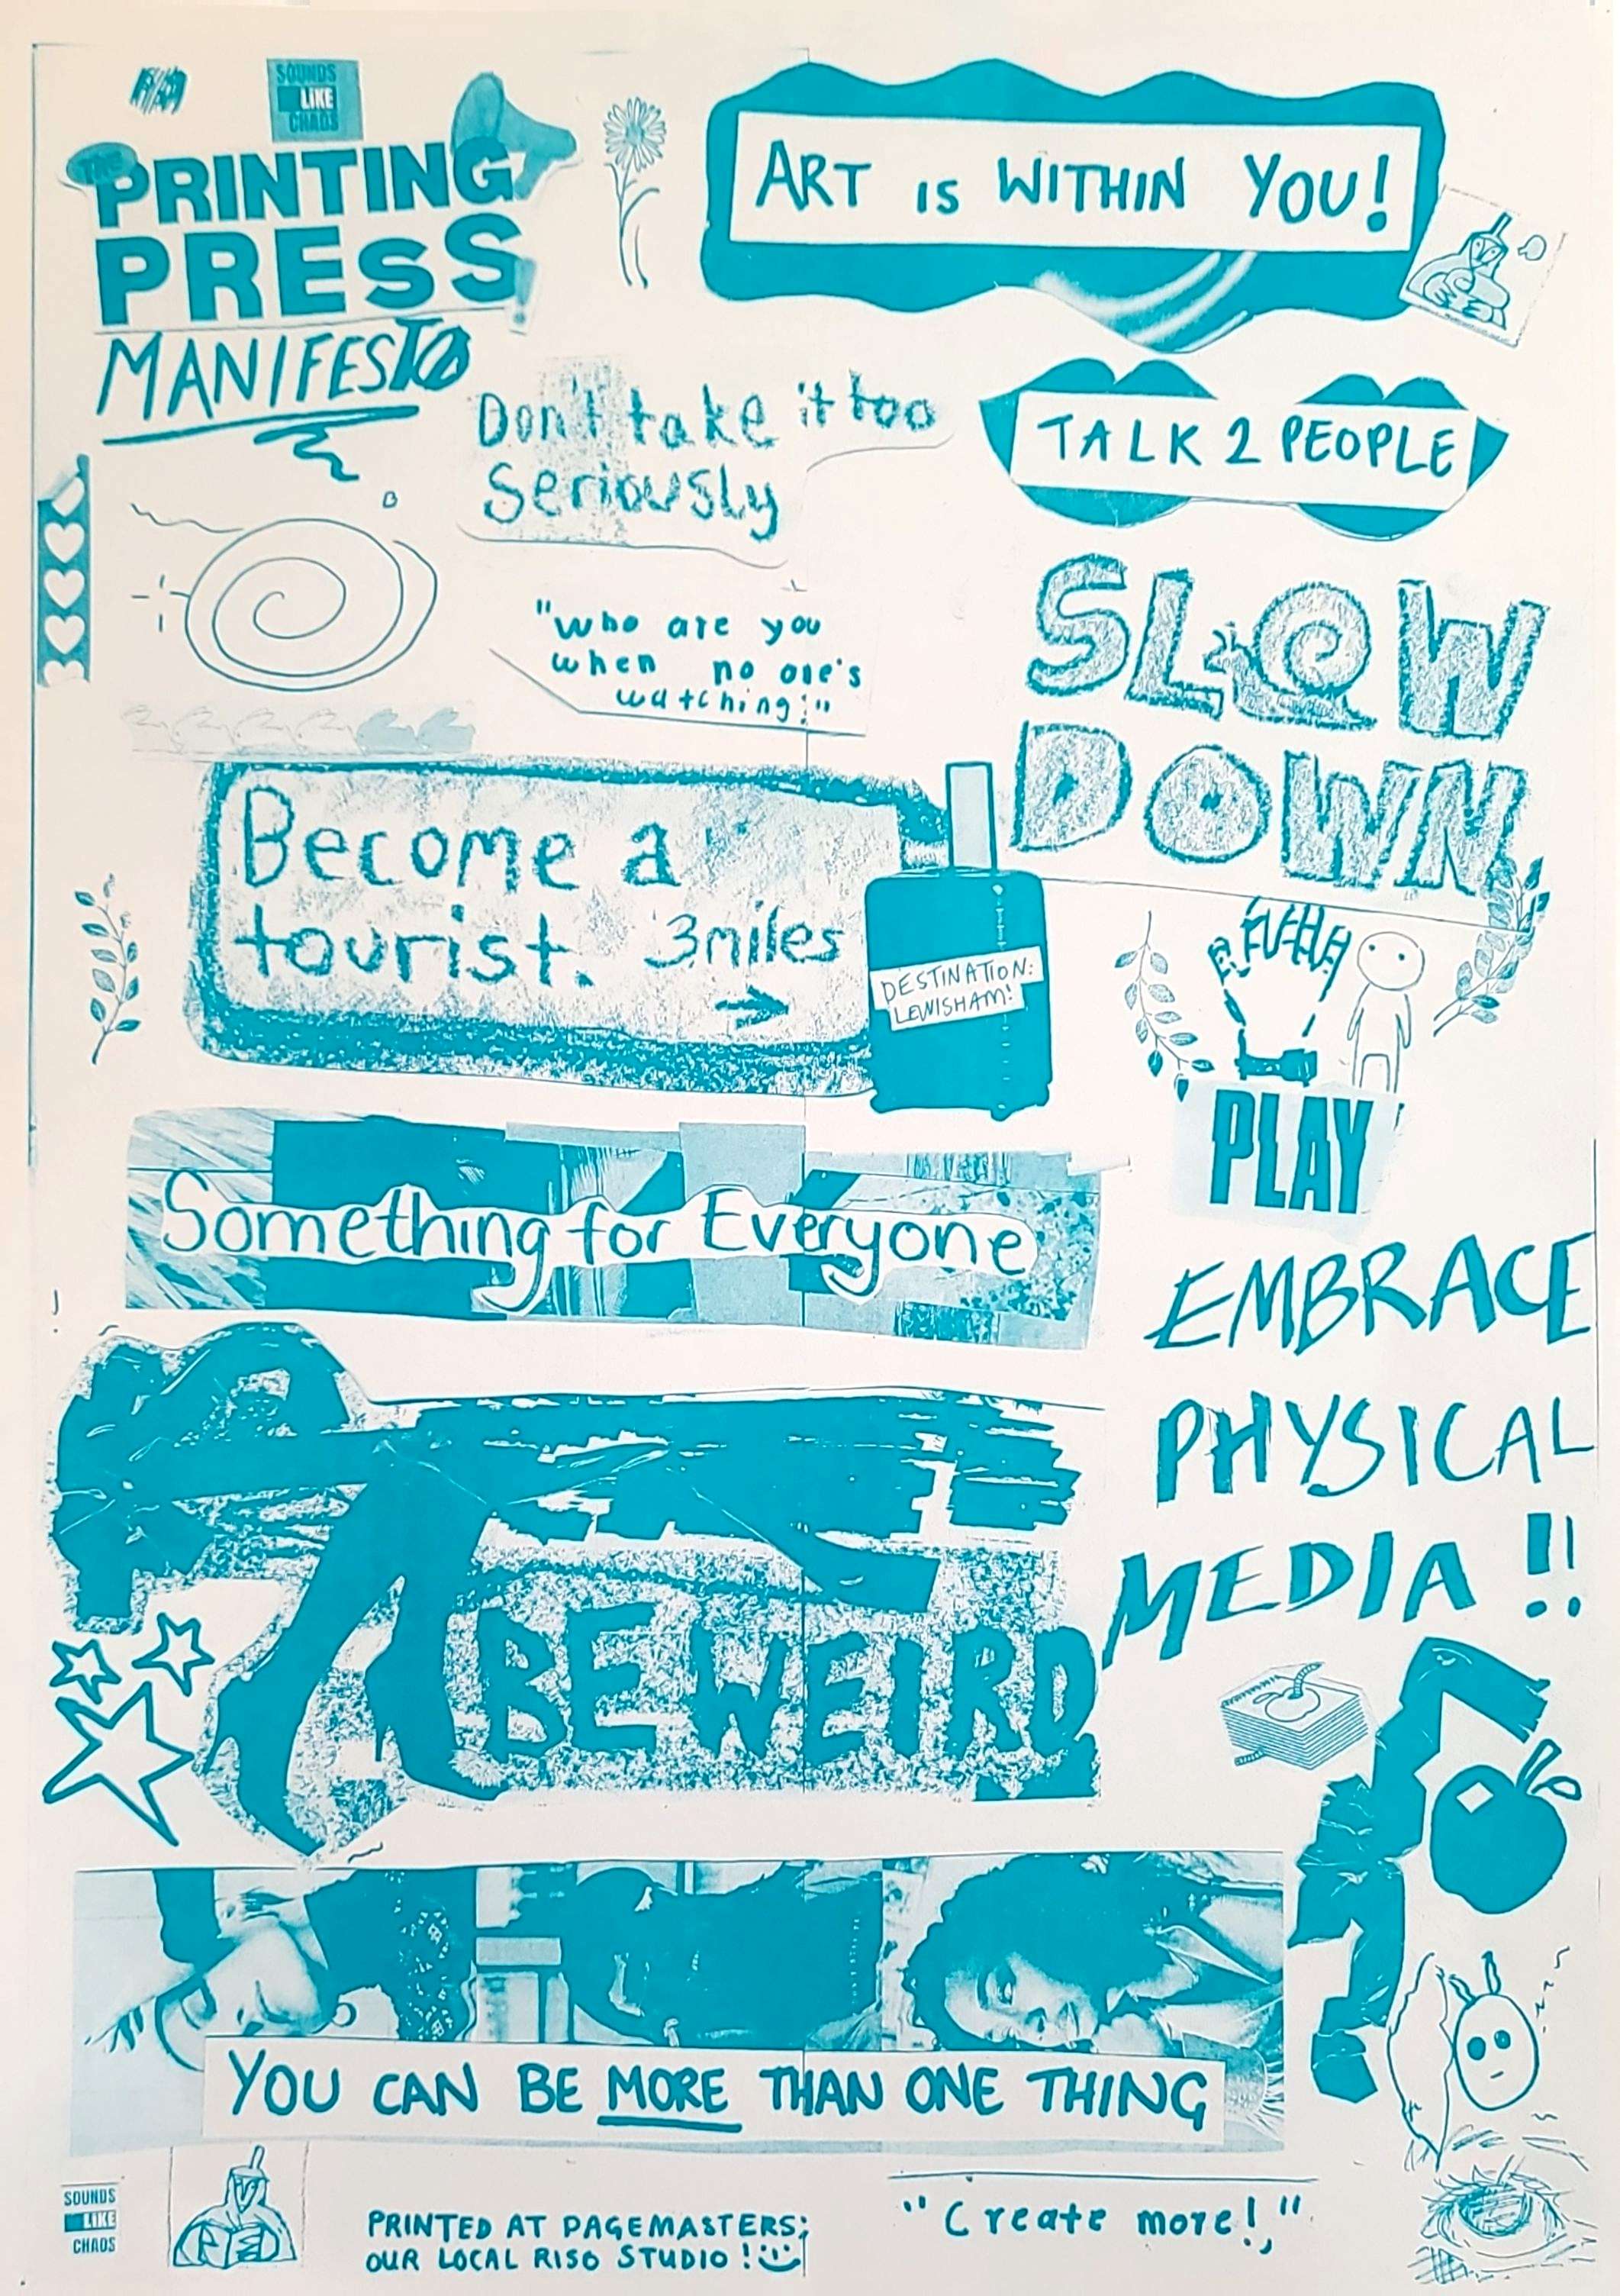 SOUNDS
LIKE
CHAOS
THE
PRINTING
PRESS
MANIFESTO
ART IS WITHIN YOU!
Don't take it too
Seriously
TALK 2 PEOPLE
"who are you
when no one's
watching:"
SLOW
DOWN
Become a
tourist. 3miles
DESTINATION:
LEWISHAM!
PLAY
Something for Everyone
EMBRACE
PHYSICAL
MEDIA!!
BE WEIRD
YOU CAN BE MORE THAN ONE THING
SOUNDS
LIKE
CHAOS
PRINTED AT PAGEMASTERS;
OUR LOCAL RISO STUDIO!
"Create more!,"